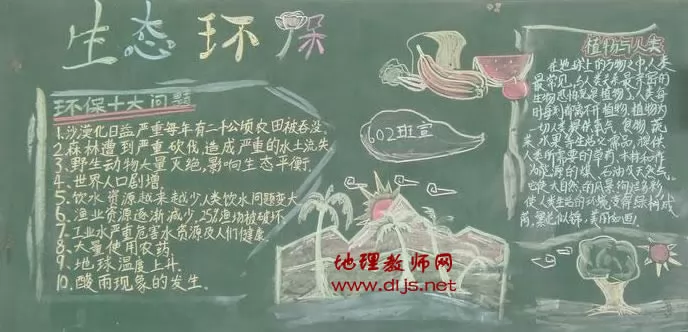 生态环保
环保十大问题
1.沙漠化日益严重每年有二十公顷农田被吞没.
2.森林遭到严重砍伐,造成严重的水土流失
3.野生动物大量灭绝,影响生态平衡.
4.世界人口剧增.
5.饮水资源越来越少人类饮水问题变大
6.渔业资源逐渐减少,25%渔场被破坏
7.工业水严重危害水资源及人们健康.
8.大量使用农药.
9.地球温度上升.
10.酸雨现象的发生.
602班宣
植物与人类
在地球上的万物之中,人类
最常见,与人类关系最亲密的
生物恐怕就是植物.人类每
时每刻都离不开植物,植物为
一切人类提供氧气,食物,蔬
菜,水果等生活必需品,提供
人类所需要的草药,木材和作
为能源的煤,石油及天然气.
它使大自然的风景绚丽多彩,
使人类生活的环境变得绿树成
荫,繁花似锦,美丽如画.
地理教师网
www.dljs.net